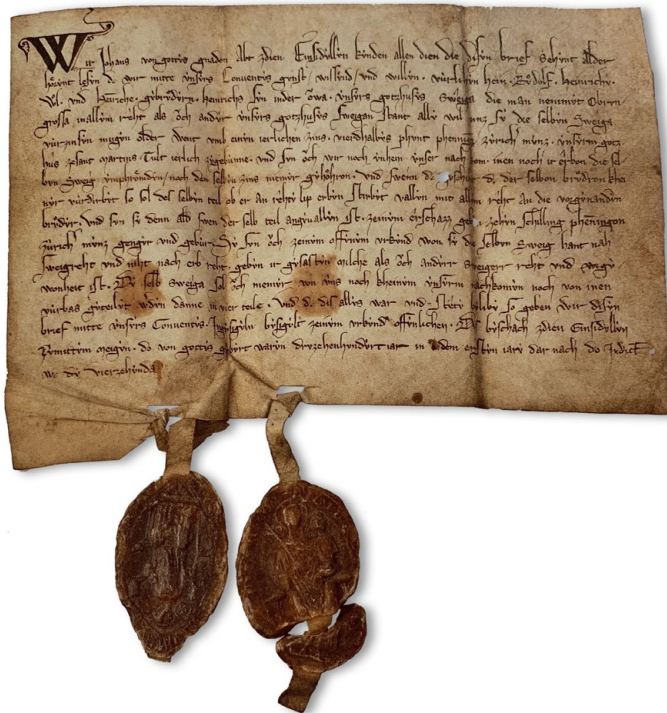 Wir Johans von gottis gnaden Abt zdien Einsidillyn kùnden allen dien die disyn brief sehint alder
hörint lesyn dc wir mitte ùnsers Conventis gunst wissend und willyn verlihen hein Rùdolf Heinriche
Wl. und Heriche gebrùdyrn Heinrichs syn inder öwa ùnsers gotzhuses Sweiga die man nemmyt Obern
grossa mit allym reht als och andyr ùnsers gotzhuses sweigan stant alle wil unz sy die selbyn Sweiga
verzinsyn mugyn older went umb einyn ierlichen zins vierdhalbes phunt phenning zùrich mùnz ùnserm gotz
hus ze sant martins Tult ierlich ze gebenne und syn och wir noch enhein ùnser nachkom inen noch ir erbon die sel
byn Sweig enphrömden noch den selbyn zins memyr gehöhron und swenn der selbon brùdron theil
so sol der selbyn teil ob er an reht lip erbyn stirbit vallyn mit allem reht an die vorgenandyn
brùdyr und syn sy denn als swen der selb teil angevallyn ist ze einem erschazz geben zehyn schilling phenningon
zùrich mùnz genger und geber Sy syn och ze einem offennym urkùnd won sy die selbyn Sweig hant nah
sweigreht und niht nach erb reht gebyn ir gysaztyn milche als och andyr sweiger reht und ir gy
wonheit ist Dù selb sweiga sol och memyr von ùns noch enheinem ùnserm nachkomyn noch von inen
vùrbas geteilyt werdyn danne in vier teile Und dc dis allys war und stete belibe so geben wir disyn
brief mitte ùnsers Conventis Insigyln besigelt ze einym urkùnd offenlichen Dis beschach zdien Einsidillyn
an mittem meigyn do von gottis gebùrt waryn drùzehenhundyrt iar in dem ersten iare dar nach do Indict
was dù vierzehynda